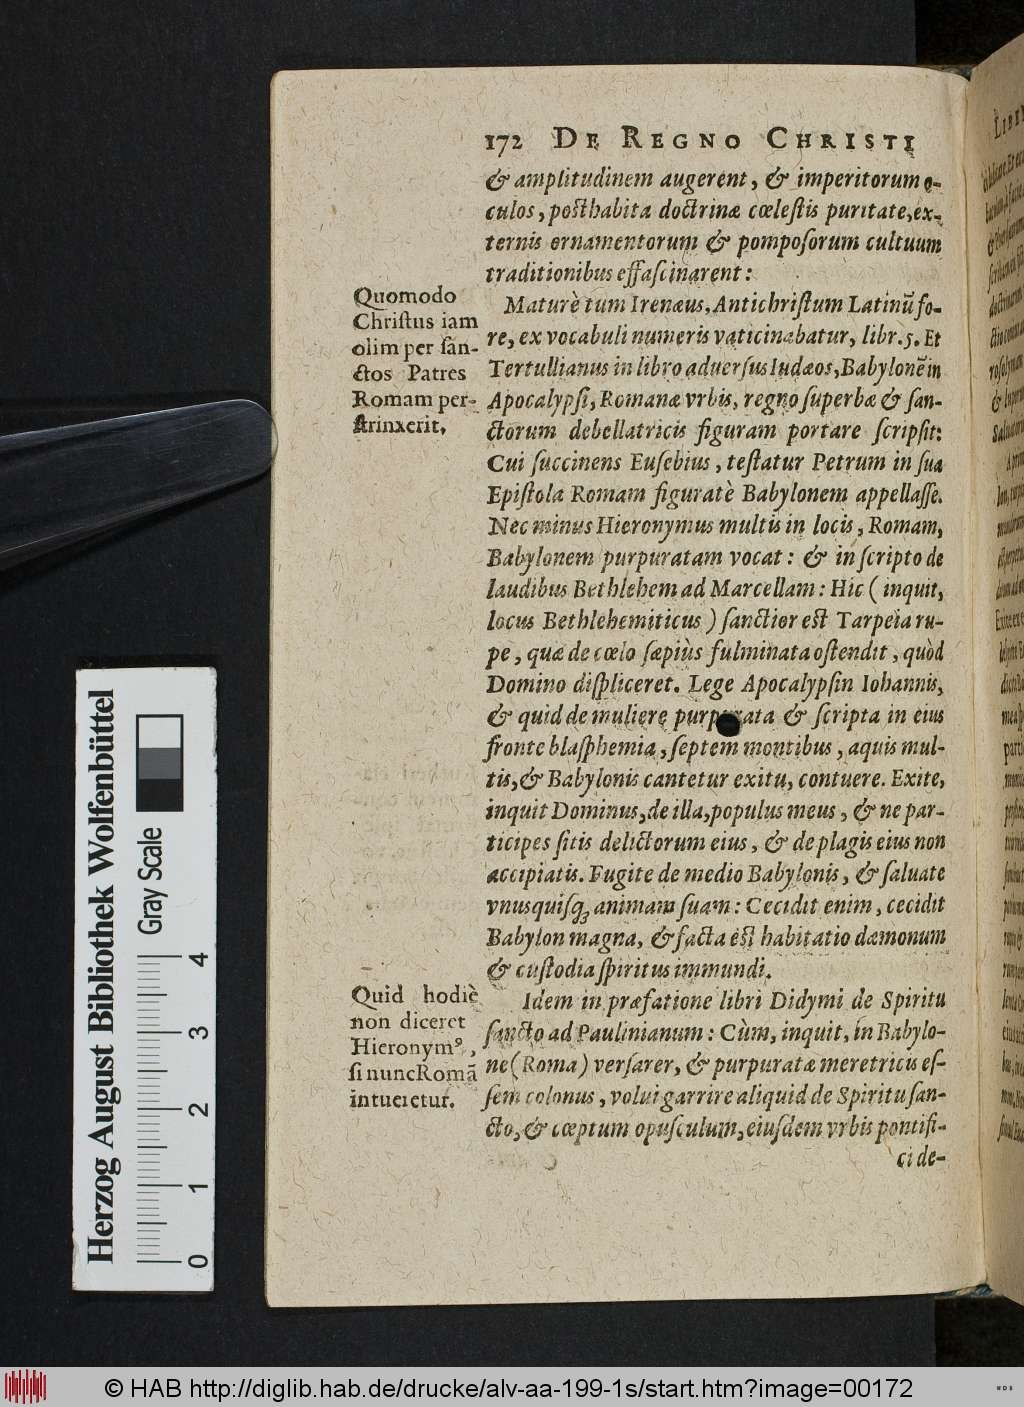 172 DE REGNO CHRISTI
& amplitudinem augerent, & imperitorum o-
culos, posthabita doctrinæ cœlestis puritate, ex-
ternis ornamentorum & pomposorum cultuum
traditionibus effascinarent:
Quomodo
Christus iam
olim per san-
ctos Patres
Romam per-
strinxerit.
Maturè tum Irenæus, Antichristum Latinũ fo-
re, ex vocabuli numeris vaticinabatur, libr. 5. Et
Tertullianus in libro aduersus Iudæos, Babylonẽ in
Apocalypsi, Romanæ vrbis, regno superbæ & san-
ctorum debellatricis figuram portare scripsit:
Cui succinens Eusebius, testatur Petrum in sua
Epistola Romam figuratè Babylonem appellasse.
Nec minus Hieronymus multis in locis, Romam,
Babylonem purpuratam vocat: & in scripto de
laudibus Bethlehem ad Marcellam: Hic ( inquit,
locus Bethlehemiticus ) sanctior est Tarpeia ru-
pe, quæ de cœlo sæpiùs fulminata ostendit, quòd
Domino displiceret. Lege Apocalypsin Iohannis,
& quid de muliere purpurata & scripta in eius
fronte blasphemia, septem montibus, aquis mul-
tis, & Babylonis cantetur exitu, contuere. Exite,
inquit Dominus, de illa, populus meus, & ne par-
ticipes sitis delictorum eius, & de plagis eius non
accipiatis. Fugite de medio Babylonis, & saluate
vnusquisq; animam suam: Cecidit enim, cecidit
Babylon magna, & facta est habitatio dæmonum
& custodia spiritus immundi.
Quid hodiè
non diceret
Hieronymꝰ,
si nunc Romã
intueretur.
Idem in præfatione libri Didymi de Spiritu
sancto ad Paulinianum: Cùm, inquit, in Babylo-
ne (Roma) versarer, & purpuratæ meretricis es-
sem colonus, volui garrire aliquid de Spiritu san-
cto, & cœptum opusculum, eiusdem vrbis pontifi-
ci de-
Herzog August Bibliothek Wolfenbüttel
Gray Scale
0 1 2 3 4
© HAB http://diglib.hab.de/drucke/alv-aa-199-1s/start.htm?image=00172